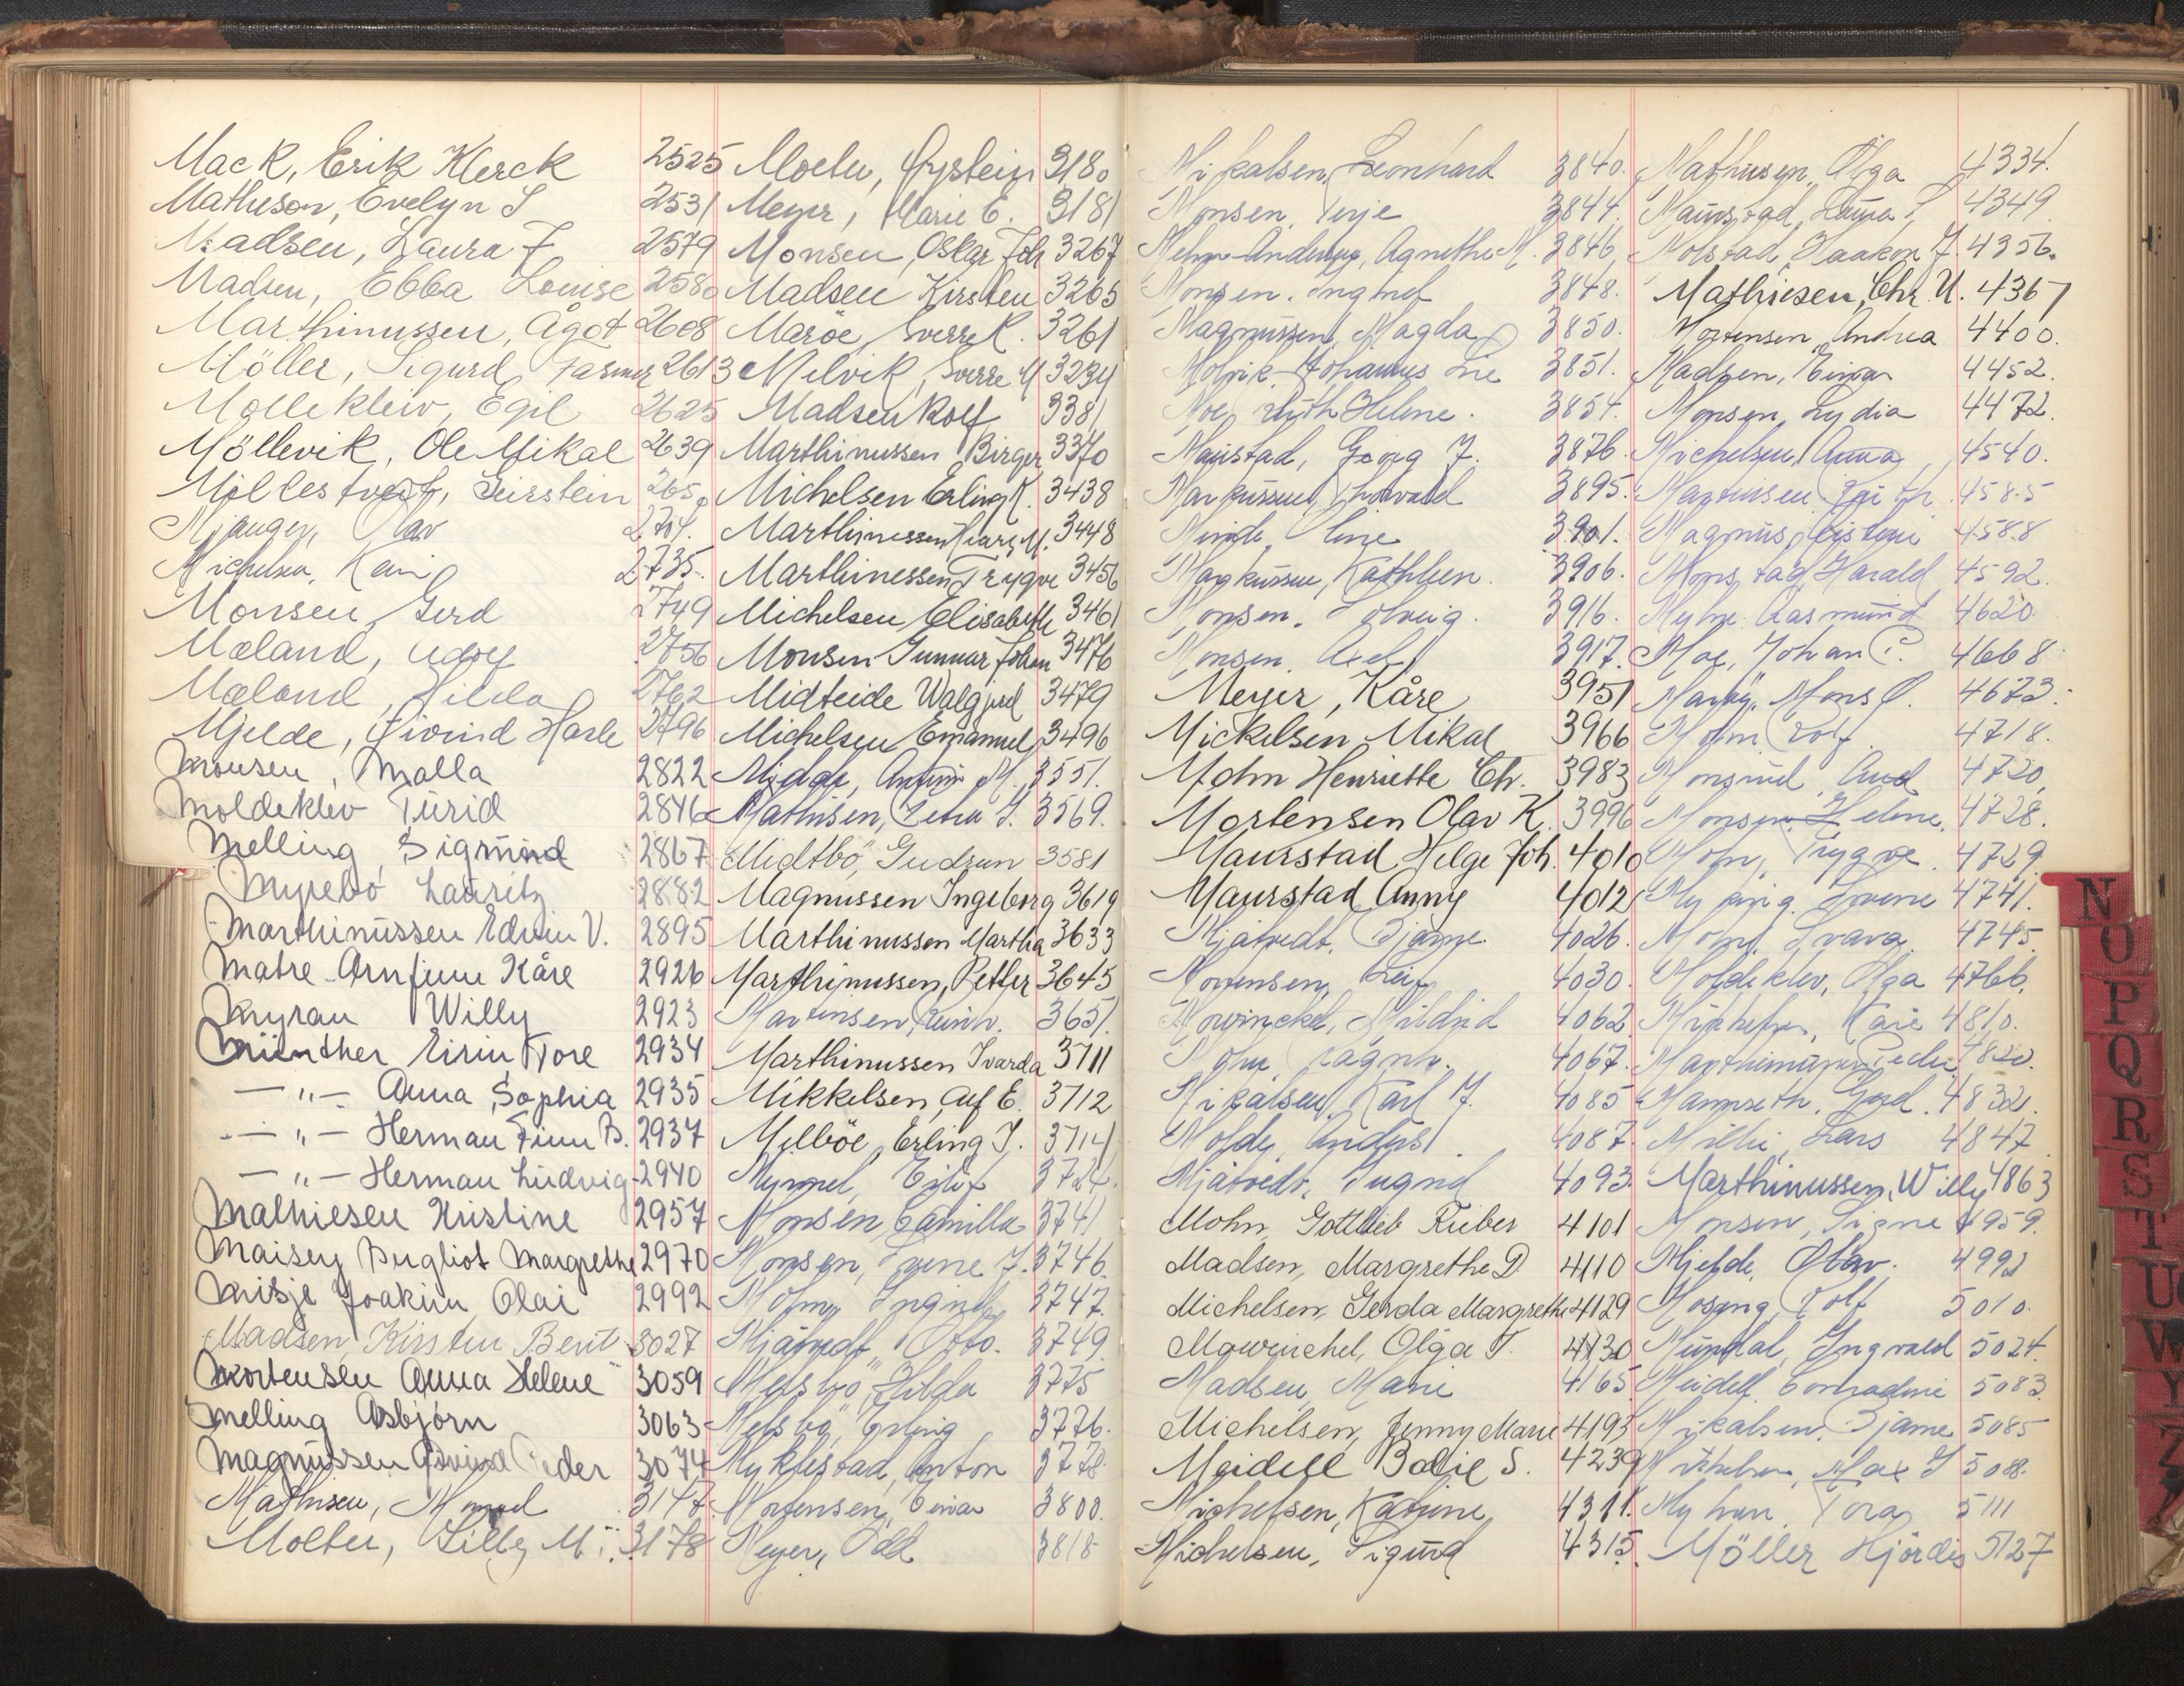 Mack, Erik Klerck 2525
Matheson, Evelyn S 2531
Madsen, Laura J 2579
Madsen, Ebba Louise 2580
Marthinussen, Ågot 2608
Möller, Sigurd 2613
Mollekleiv, Egil 2625
Möllevik, Ole Mikal 2639
Geirstein 265
Mjanger, Olav 2704.
Michelsen, Kari 2735.
Monsen, Gerd 2749
Mæland, Adolf 2756
Mæland, Hilda 2762
Mjelde, Øivind Harle 2796
Monsen, Malla 2822
Moldeklev Turid 2846
Melling, Sigmund 2867
Myrebö Lauritz 2882
Marthinussen Edvin V. 2895
Matre Arnfinn Kåre 2926
Myran Willy 2923
Münther Eirin, Tore 2934
— „ — Anna, Sophia 2935
— „ — Herman Finn B. 2937
— „ — Herman Ludvig 2940
Mathiesen Kristine 2957
Maisey Bergliot Margrethe 2970
Misje Joakim Olai 2992
Madsen, Kirsten Berit 3027
Mortensen Anna Helene 3059
Melling Asbjörn 3063
Magnussen Øivind 3074
Mathisen, 3147
Molter, Lilly M. 3178
Øystein 3180
Meyer, Marie E. 3181
Monsen, Oskar Joh 3267
Madsen Kirsten 3265
Maröe, Sverre R. 3261
Melvik, Sverre M 3234
Madsen Rolf 3381
Marthinussen Birger 3370
Michelsen Erling K. 3438
Marthinussen M. 3448
Marthinessen Trygve 3456
Michelsen Elisabeth 3461
Monsen Gunnar Johan 3476
Midteide Walgjerd 3479
Michelsen Emanuel 3496
Anton M. 3551.
Mathisen, Petra J. 3569.
Midtbö, Gudrun 3581
Magnussen Ingeborg 3619
Marthinussen Martha 3633
Marthinussen, Petter 3645
Martinsen, 3651.
Marthinussen Ivarda 3711
Mikkelsen, Alf E. 3712
Melböe, Erling J. 3714
Myrmel, Eilif 3724.
Monsen, Camilla 3741
Monsen, J. 3746.
Mohn, Ingrid 3747.
Mjåtvedt, Otto. 3749.
Hilda 3775
Erling 3776.
Myklestad, Anton 3778
Mortensen, Einar 3800.
Meyer, Odd 3818
Mikalsen, Leonhard 3840.
Monsen, Terje 3844.
Agnethe M. 3846.
Monsen. Ingrid 3848.
Magnussen, Magda 3850.
Molvik, Johannes Lie 3851.
Moe, Ruth Helene. 3854.
Maurstad, Georg J. 3876.
Markussen, Thorvald 3895.
Minde, Line 3901.
Markussen, Kathleen. 3906.
Monsen. Solveig. 3916.
Monsen. Axel 3917.
Meyer, Kåre 3951
Mickelsen Mikal 3966
Mohn Henriette Chr. 3983
Mortensen Olav K. 3996
Maurstad Helge Joh. 4010
Maurstad Anny 4012
Mjåtvedt, Bjarne. 4026.
Mortensen, Leif 4030.
Mowinckel, Mildrid 4062
Mohn, Ragnh. 4067.
Mikalsen, Karl J. 4085
Molde, Anders 4087.
Mjåtvedt, Sigurd 4093.
Mohn, Gottlieb Rieber 4101
Madsen, Margrethe D. 4110
Michelsen, Gerda Margrethe 4129
Mowinckel, Olga T. 4130
Madsen, Marie 4165.
Michelsen, Jenny Marie 4193
Meidell Bodil S. 4239
Michelsen, Katrine 4311.
Michelsen, Sigurd 4315.
Mathiesen, Olga 4334.
Maurstad, Laura 4349.
Molstad, Haakon J. 4356.
Mathiesen, Chr. U. 4367
Mortensen, Andrea 4400.
Madsen, Einar 4452.
Monsen, Lydia 4472.
Michelsen, Anna 4540.
4585
Magnus, 4588
Monstad, Harald 4592.
Myhre Aasmund 4620.
Moe, Johan C. 4668
Mons O. 4673.
Mohn Rolf. 4718.
Aud 4720.
Monsen, Helene. 4728.
Mohn, Trygve. 4729.
4741.
Mohn, Svava. 4745
Moldeklev, Olga 4766.
Kari 4810.
Marthinussen 4820.
Gerd. 4832.
Lars 4847
Marthinussen, Willy 4863
Monsen, Signe 4959.
Mjelde, Olav. 4992
Rolf 5010.
Mundal, Ingvald 5024.
Meidell, Conradine 5083.
Mikalsen, Bjarne 5085
Michelsen, Max J 5088.
Myhre, Tora 5111
Möller Hjördis 5127
N
O
P
Q
R
S
T
U
W
Y
Z